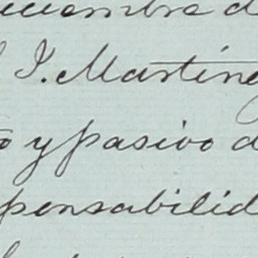 viembre d
J. Martíne
o y pasivo d
ponsabilid